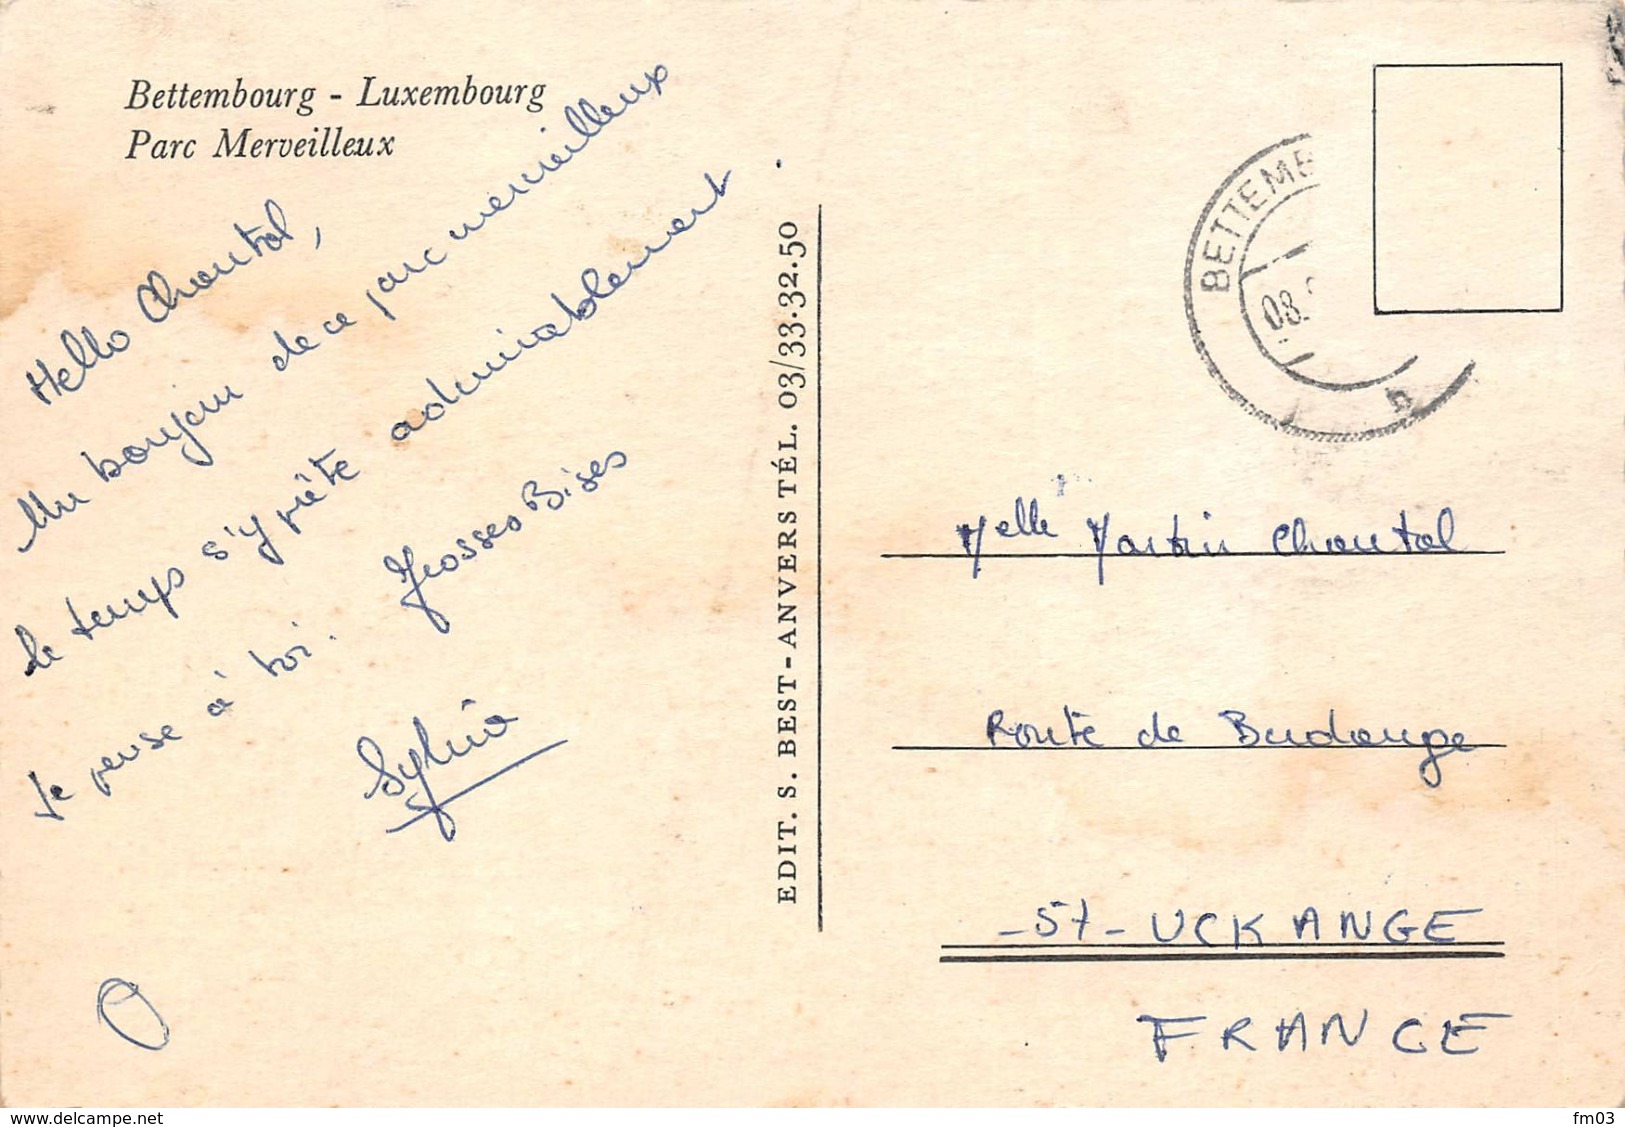 Bettembourg - Luxembourg
Parc Merveilleux
Hello Chantal,
Un bonjour de ce parc merveilleux
le temps s'y prête admirablement
Je pense à toi. Grosses Bises
Sylvia
EDIT. S. BEST - ANVERS TÉL. 03/33.32.50
BETTEMB
08.
h
Melle Martin Chantal
Route de Budange
- 57 - UCKANGE
FRANCE
www.delcampe.net
fm03